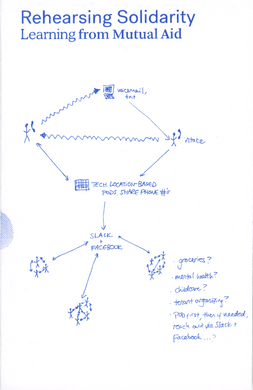 Rehearsing Solidarity
Learning from Mutual Aid
voicemail,
text
intake
TECH. LOCATION-BASED
PODS, SHARE PHONE #s
SLACK
+
FACEBOOK
· groceries?
· mental health?
· childcare?
· tenant organizing?
· Pod first, then if needed,
reach out via Slack &
Facebook ...?